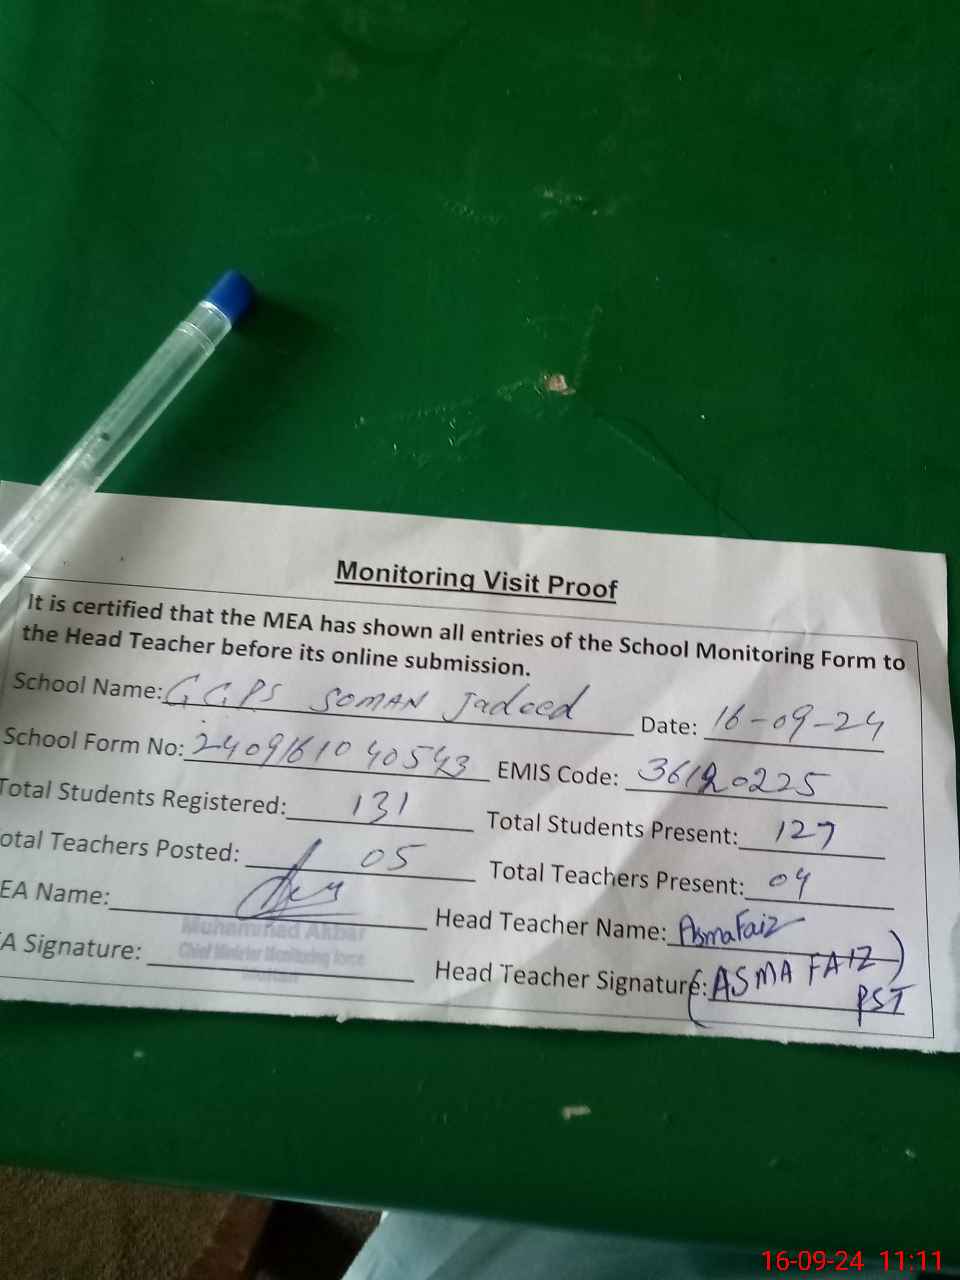 Monitoring Visit Proof
It is certified that the MEA has shown all entries of the School Monitoring Form to
the Head Teacher before its online submission.
School Name: GGPS SOMAN Jadeed Date: 16-09-24
School Form No: 2409161040543 EMIS Code: 36120225
Total Students Registered: 131 Total Students Present: 127
otal Teachers Posted: 05 Total Teachers Present: 04
EA Name: Head Teacher Name: Asma Faiz
Muhammad Akbar
Chief Minister Monitoring force
A Signature: Head Teacher Signature: (ASMA FAIZ)
PST
16-09-24 11:11